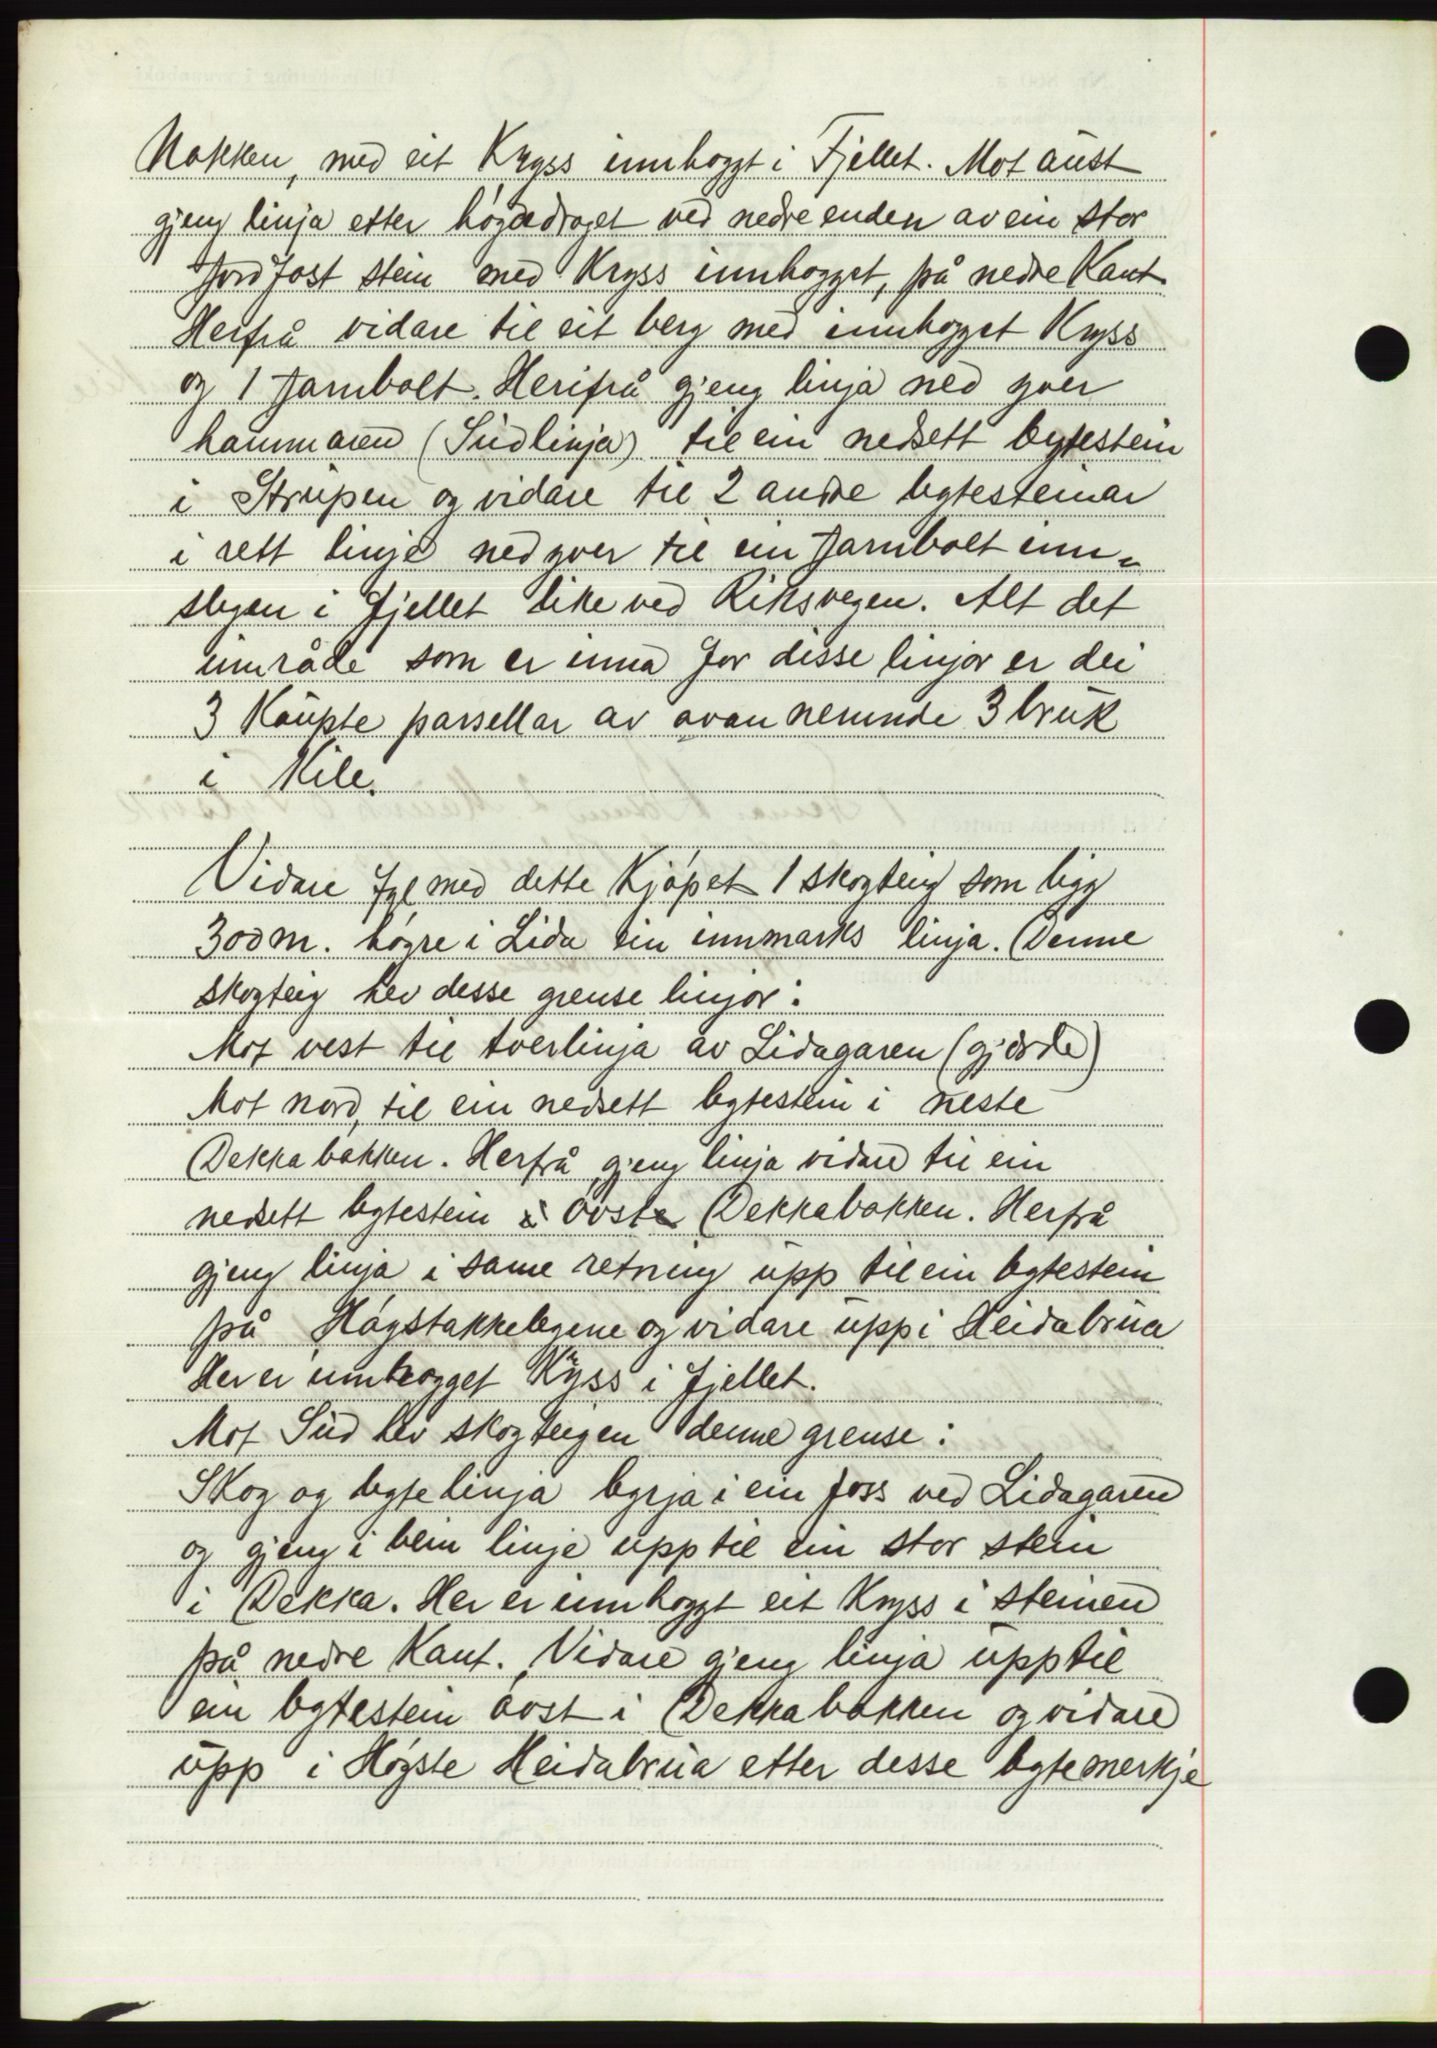 Nakken, med eit Kryss innhoggt i Fjellet. Mot aust
gjeng linja etter høgdedraget ved nedre enden av ein stor
jordfast stein med Kryss innhogget, på nedre Kant.
Herfrå vidare til eit berg med innhogget Kryss
og 1 Jarnbolt. Herifrå gjeng linja ned yver
hammaren (Sudlinja) til ein nedsett bytestein
i Strupen og vidare til 2 andre bytesteinar
i rett linje nedyver til ein Jarnbolt inn-
slegen i fjellet like ved Riksvegen. Alt det
umråde som er inna for disse linjor er dei
3 Kaupte parsellar av ovan nemnde 3 bruk
i Kile.
Vidare fyl med dette Kjøpet 1 skogteig som ligg
300 m. høgre i Lida ein innmarks linja. Denne
skogteig hev desse grense linjor:
Mot vest til tverlinja av Lidagaren (gjerde)
Mot nord, til ein nedsett bytestein i neste
Dekkabakken. Herfrå gjeng linja vidare til ein
nedsett bytestein i øvste Dekkabakken. Herfrå
gjeng linja i same retning upp til ein bytestein
på Høgstakkelegene og vidare upp i Heidabrua
Her er innhogget Kryss i fjellet.
Mot Sud hev skogteigen denne grense:
Skog og byte linja byrja i ein foss ved Lidagaren
og gjeng i bein linje upp til ein stor stein
i Dekka. Her er innhoggt eit Kryss i steinen
på nedre Kant. Vidare gjeng linja upp til
ein bytestein øvst i Dekkabakken og vidare
upp i Høgste Heidabrua etter desse bytemerkje